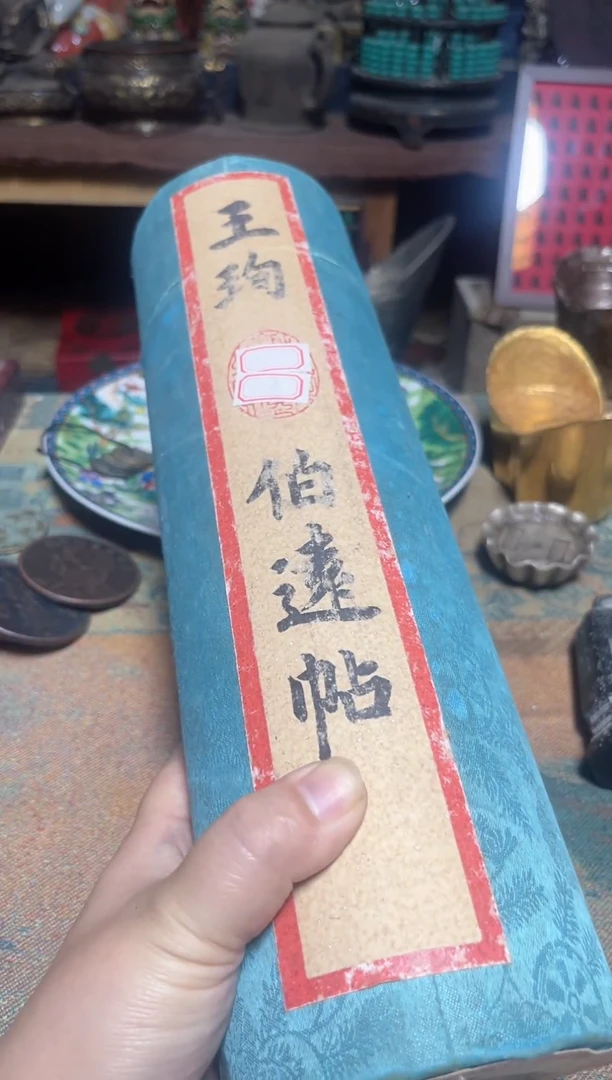 王珣
伯遠帖